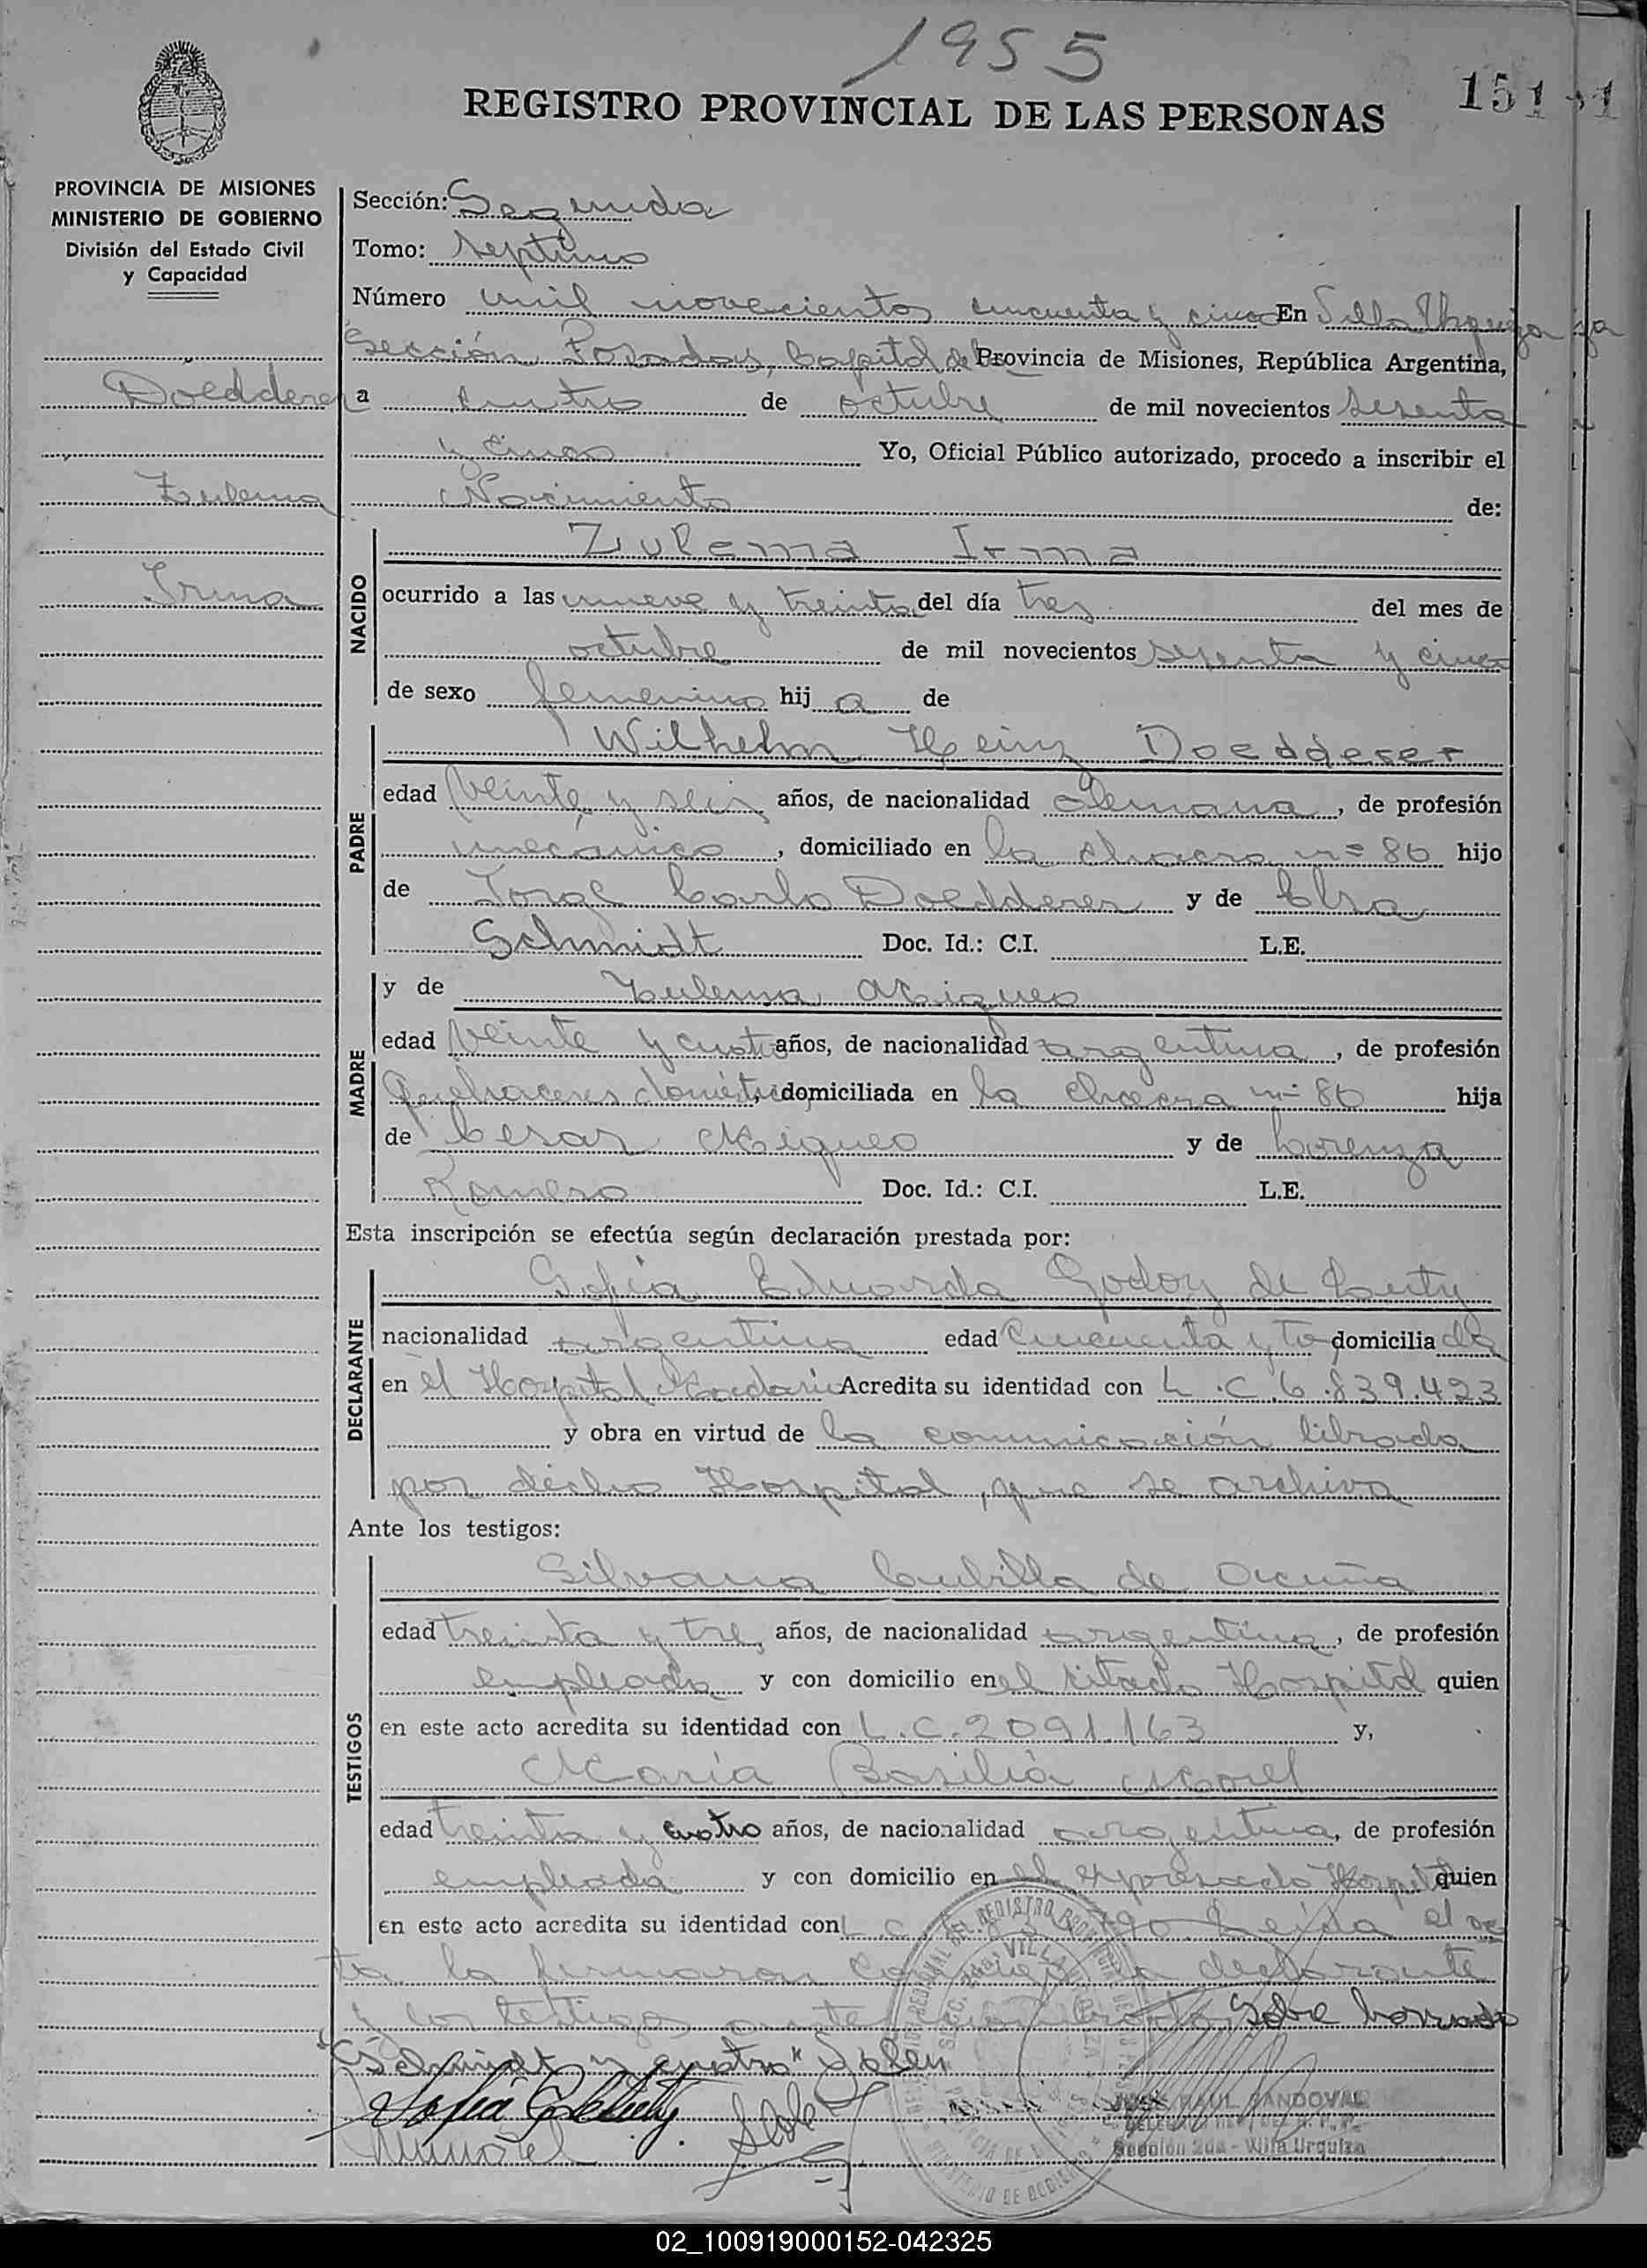 1955
REGISTRO PROVINCIAL DE LAS PERSONAS
151
PROVINCIA DE MISIONES
MINISTERIO DE GOBIERNO
División del Estado Civil
y Capacidad
Doedderer
Zulema
Irma
Sección: Segunda
Tomo: septimo
Número mil novecientos cincuenta y cinco En Villa Urquiza
Sección, Posadas, Capital de Provincia de Misiones, República Argentina,
a cuatro de octubre de mil novecientos sesenta
y cinco Yo, Oficial Público autorizado, procedo a inscribir el
Nacimiento de:
NACIDO
Zulema Irma
ocurrido a las nueve y treinta del día tres del mes de
octubre de mil novecientos sesenta y cinco
de sexo femenino hija de
PADRE
Wilhelm Heinz Doedderer
edad veinte y seis años, de nacionalidad alemana, de profesión
mecánico, domiciliado en la chacra nº 86 hijo
de Jorge Carlo Doedderer y de Elsa
Schmidt Doc. Id.: C.I. L.E.
MADRE
y de Zulema Migueo
edad veinte y cuatro años, de nacionalidad argentina, de profesión
Quehaceres domésticos domiciliada en la chacra nº 86 hija
de Cesar Migueo y de Lorenza
Romero Doc. Id.: C.I. L.E.
Esta inscripción se efectúa según declaración prestada por:
DECLARANTE
Sofia Eduarda Godoy de
nacionalidad argentina edad Cincuenta y domiciliada
en el Hospital Madariaga Acredita su identidad con L.C. 6.839.423
y obra en virtud de la comunicación librada
por dicho Hospital, que se archiva
Ante los testigos:
TESTIGOS
Silvana Cubilla de Acuña
edad treinta y tres años, de nacionalidad argentina, de profesión
empleada y con domicilio en el citado Hospital quien
en este acto acredita su identidad con L.C. 2091.163 y,
María Basilia Morel
edad treinta y cuatro años, de nacionalidad argentina, de profesión
empleada y con domicilio en el expresado Hospital quien
en este acto acredita su identidad con L.C. Leida el ac
ta la firmaron conmigo la declarante
y los testigos ante Sobre borrado
"Schmidt y cuatro" Valen
JOSE RAUL SANDOVAL
Sección 2da - Villa Urquiza
02_100919000152-042325